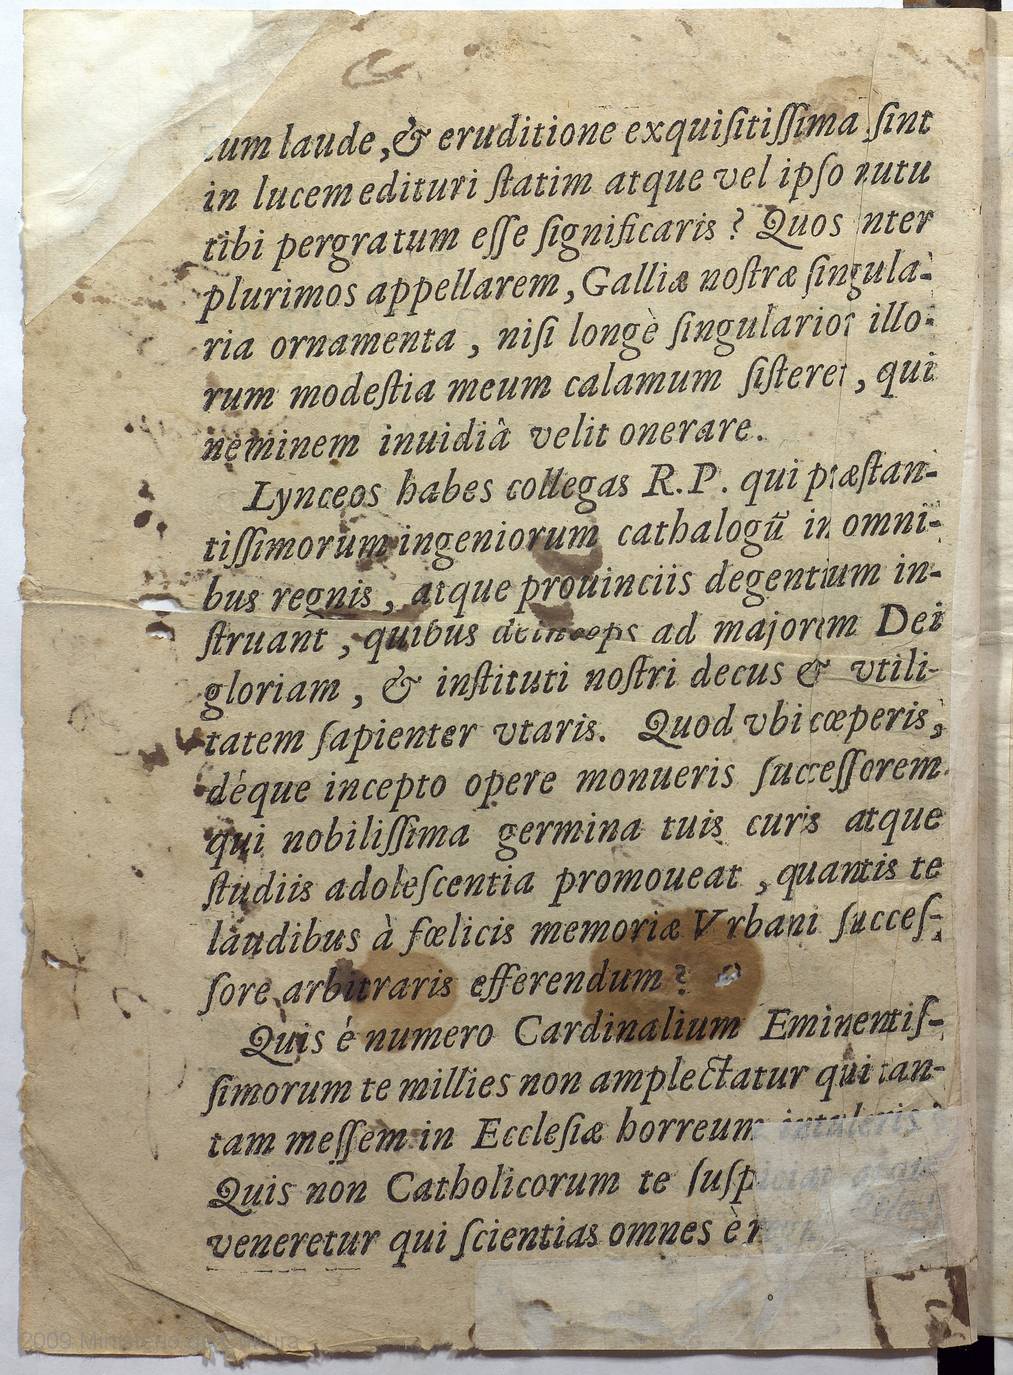 cum laude, & eruditione exquisitissima sint
in lucem edituri statim atque vel ipso nutu
tibi pergratum esse significaris? Quos inter
plurimos appellarem, Galliæ nostræ singula-
ria ornamenta, nisi longè singularior illo-
rum modestia meum calamum sisteret, qui
neminem inuidiâ velit onerare.
Lynceos habes collegas R.P. qui præstan-
tissimorum ingeniorum cathalogũ in omni-
bus regnis, atque prouinciis degentium in-
struant, quibus deinceps ad majorem Dei
gloriam, & instituti nostri decus & vtili-
tatem sapienter vtaris. Quod vbi cœperis,
déque incepto opere monueris successorem
qui nobilissima germina tuis curis atque
studiis adolescentia promoueat, quantis te
laudibus à fœlicis memoriæ Vrbani succes-
sore arbitraris efferendum?
Quis é numero Cardinalium Eminentis-
simorum te millies non amplectatur qui tan-
tam messem in Ecclesiæ horreum intuleris?
Quis non Catholicorum te suspiciat
veneretur qui scientias omnes è
2009 Ministerio de Cultura